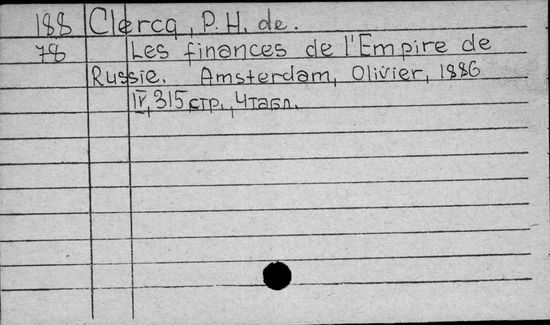 188 Clercq, P. H. de.
78 Les finances de l'Empire de
Russie. Amsterdam, Olivier, 1886
IV, 315 стр., 4 табл.